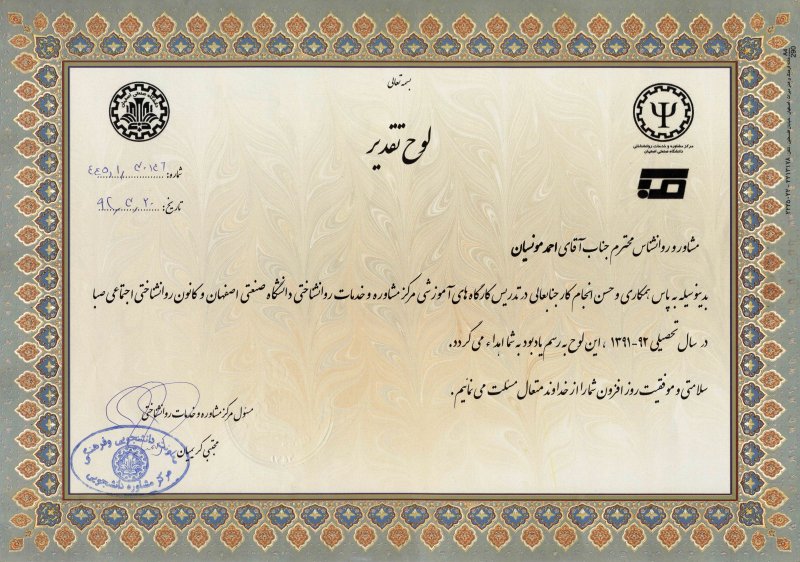 بسمه تعالی
لوح تقدیر
مرکز مشاوره و خدمات روانشناختی
دانشگاه صنعتی اصفهان
شماره:
تاریخ:
مشاور و روانشناس محترم جناب آقای احمد مونسیان
بدینوسیله به پاس همکاری و حسن انجام کار جنابعالی در تدریس کارگاه های آموزشی مرکز مشاوره و خدمات روانشناختی دانشگاه صنعتی اصفهان و کانون روانشناختی اجتماعی صبا
در سال تحصیلی ۹۲-۱۳۹۱ ، این لوح به رسم یادبود به شما اهداء می گردد.
سلامتی و موفقیت روز افزون شما را از خداوند متعال مسئلت می نمائیم.
مسئول مرکز مشاوره و خدمات روانشناختی
مجتبی کریمیان
مرکز مشاوره دانشجویی